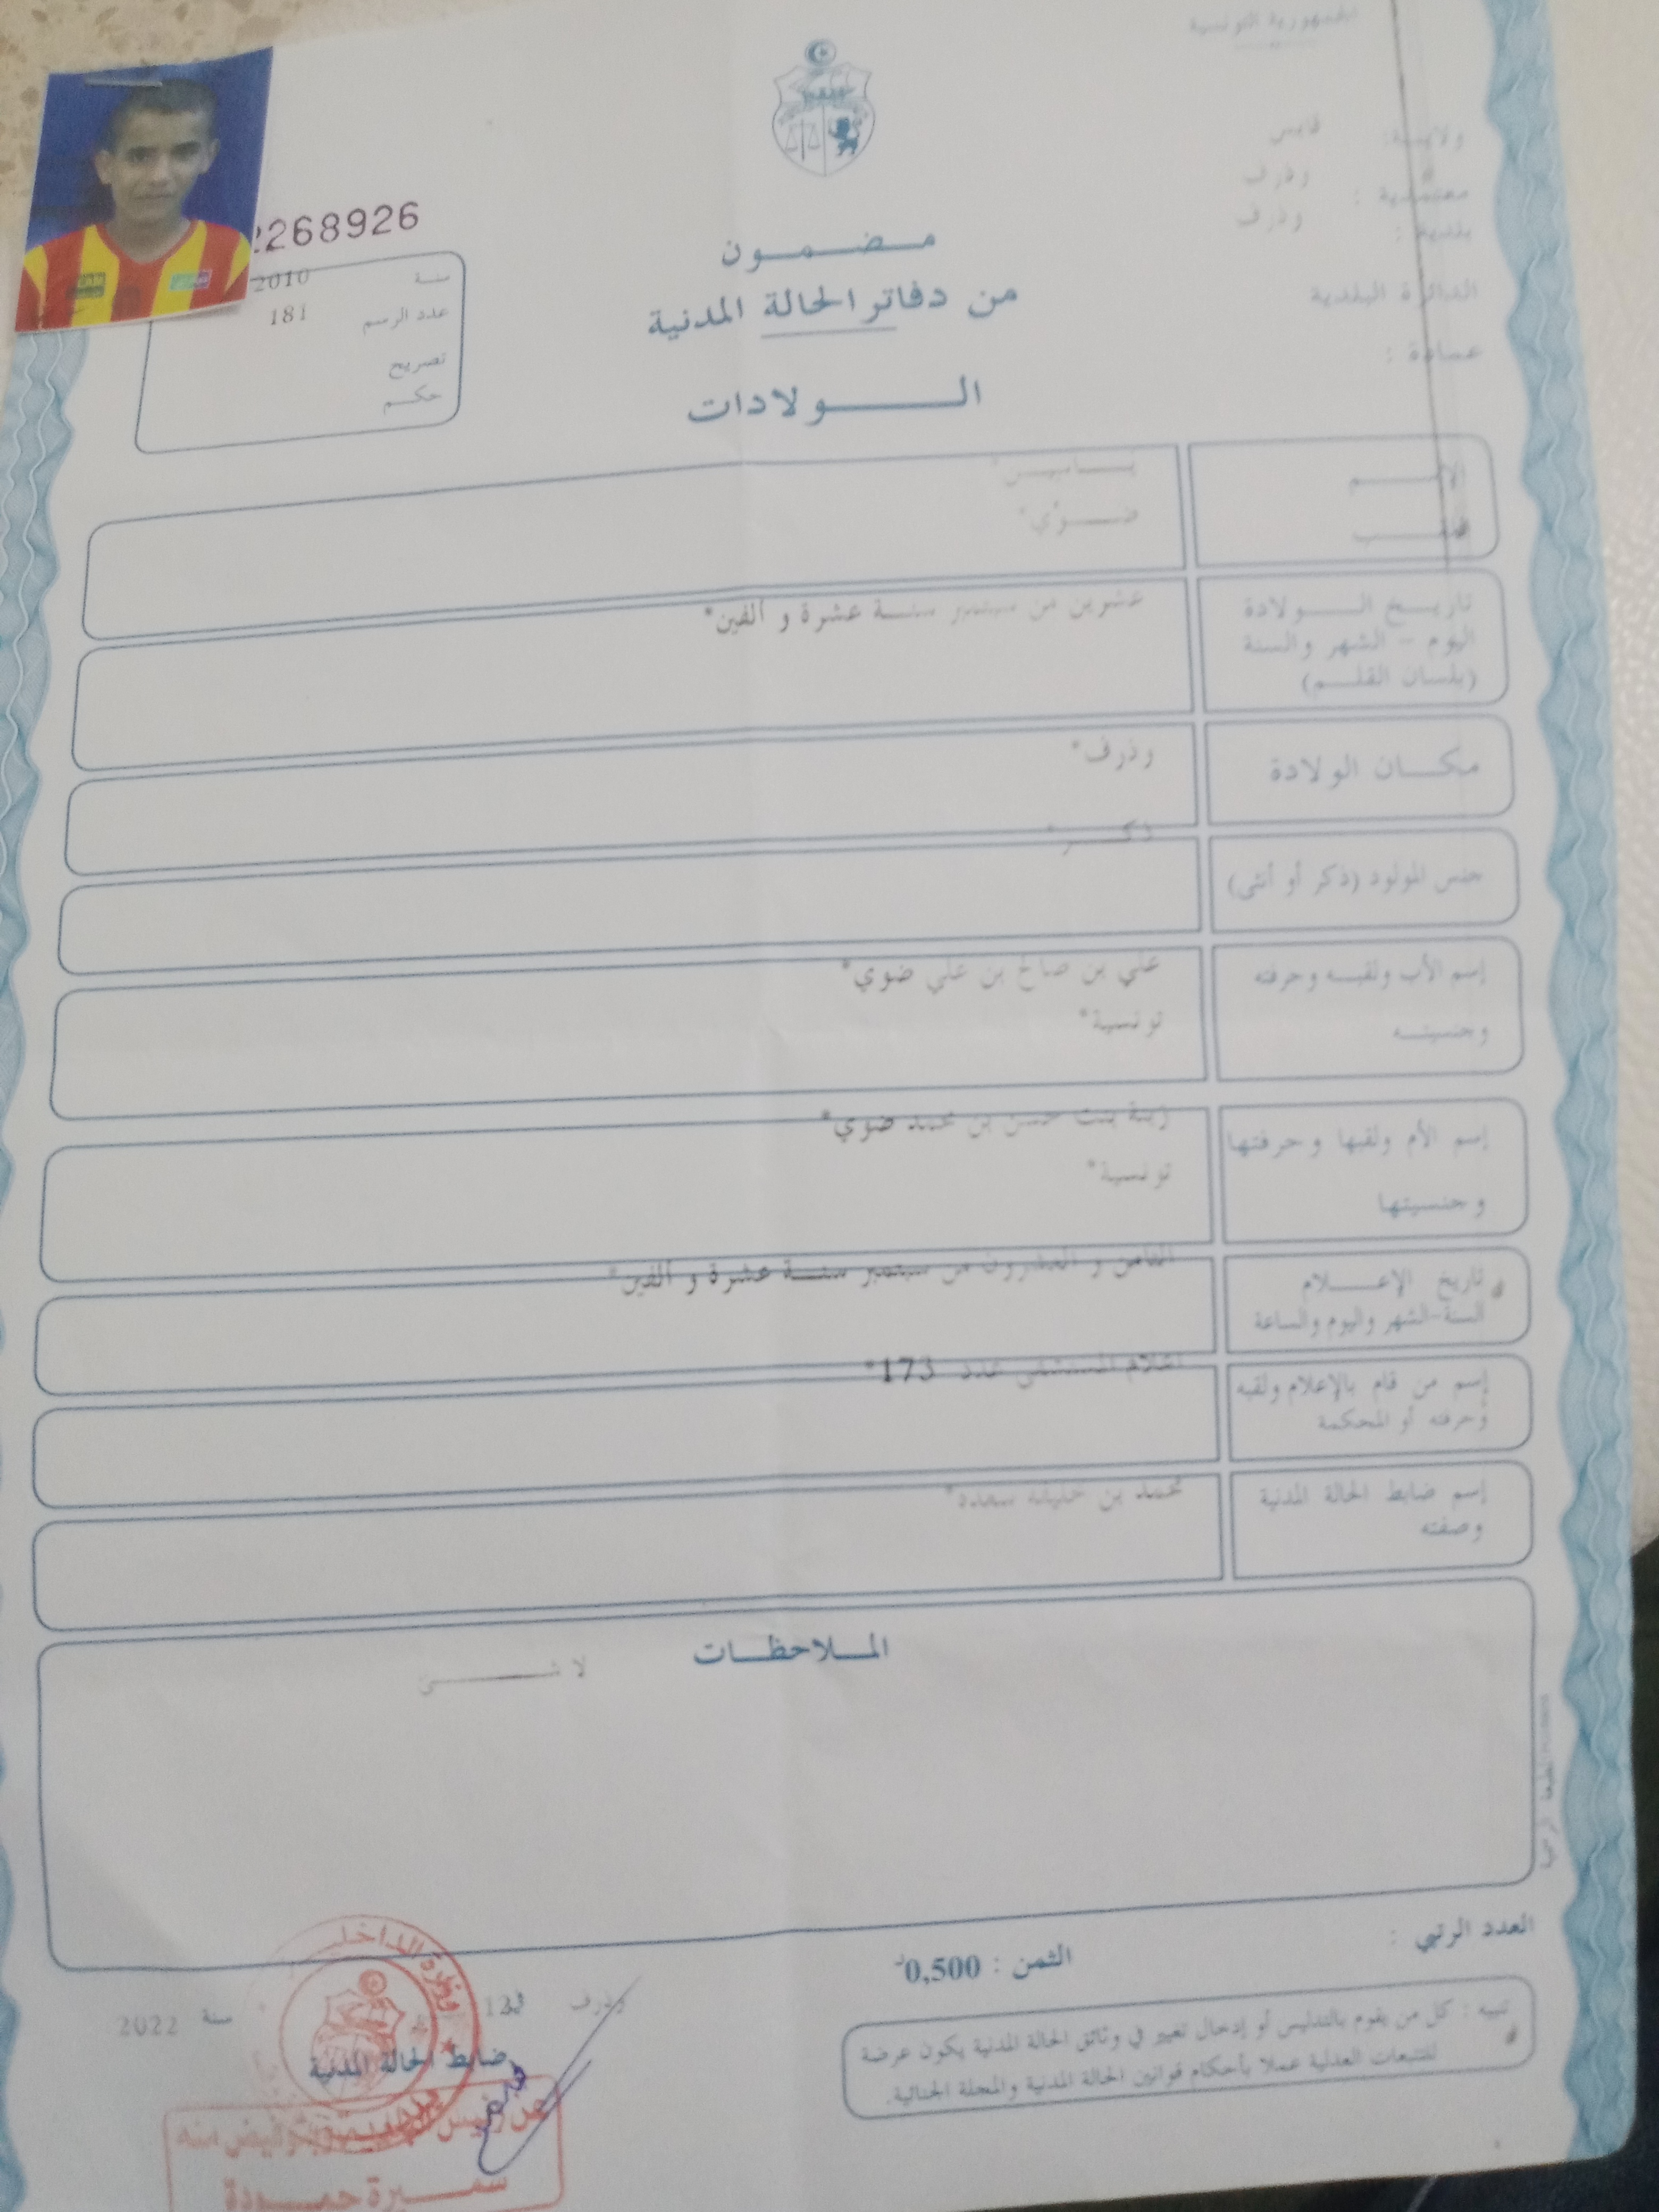 الجمهورية التونسية
ولايــة: قابس
معتمدية : وذرف
بلدية : وذرف
الدائرة البلدية
عمادة :
2268926
سنة 2010
عدد الرسم 181
تصريح
حكم
مضمون
من دفاتر الحالة المدنية
الولادات
الإسم
اللقب
ضوي*
تاريخ الولادة
اليوم - الشهر والسنة
(بلسان القلم)
عشرين من سبتمبر سنة عشرة و ألفين*
مكان الولادة
وذرف*
جنس المولود (ذكر أو أنثى)
ذكر*
إسم الأب ولقبه وحرفته
وجنسيته
علي بن صالح بن علي ضوي*
تونسية*
إسم الأم ولقبها وحرفتها
وجنسيتها
زينة بنت حسن بن محمد ضوي*
تونسية*
تاريخ الإعلام
السنة-الشهر واليوم والساعة
الثامن و العشرون من سبتمبر سنة عشرة و ألفين*
إسم من قام بالإعلام ولقبه
وحرفته أو المحكمة
اعلام المستشفى عدد 173*
إسم ضابط الحالة المدنية
وصفته
محمد بن خليفة سعده*
الملاحظات
لا شيء
العدد الرتبي :
الثمن : 0,500د
تنبيه : كل من يقوم بالتدليس أو إدخال تغيير في وثائق الحالة المدنية يكون عرضة
للتتبعات العدلية عملا بأحكام قوانين الحالة المدنية والمجلة الجنائية.
وذرف سنة 2022
ضابط الحالة المدنية
وزارة الداخلية
سميرة حمودة